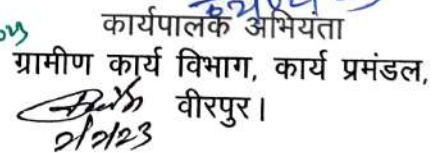 कार्यपालक अभियंता
ग्रामीण कार्य विभाग, कार्य प्रमंडल,
वीरपुर।
2/2/23